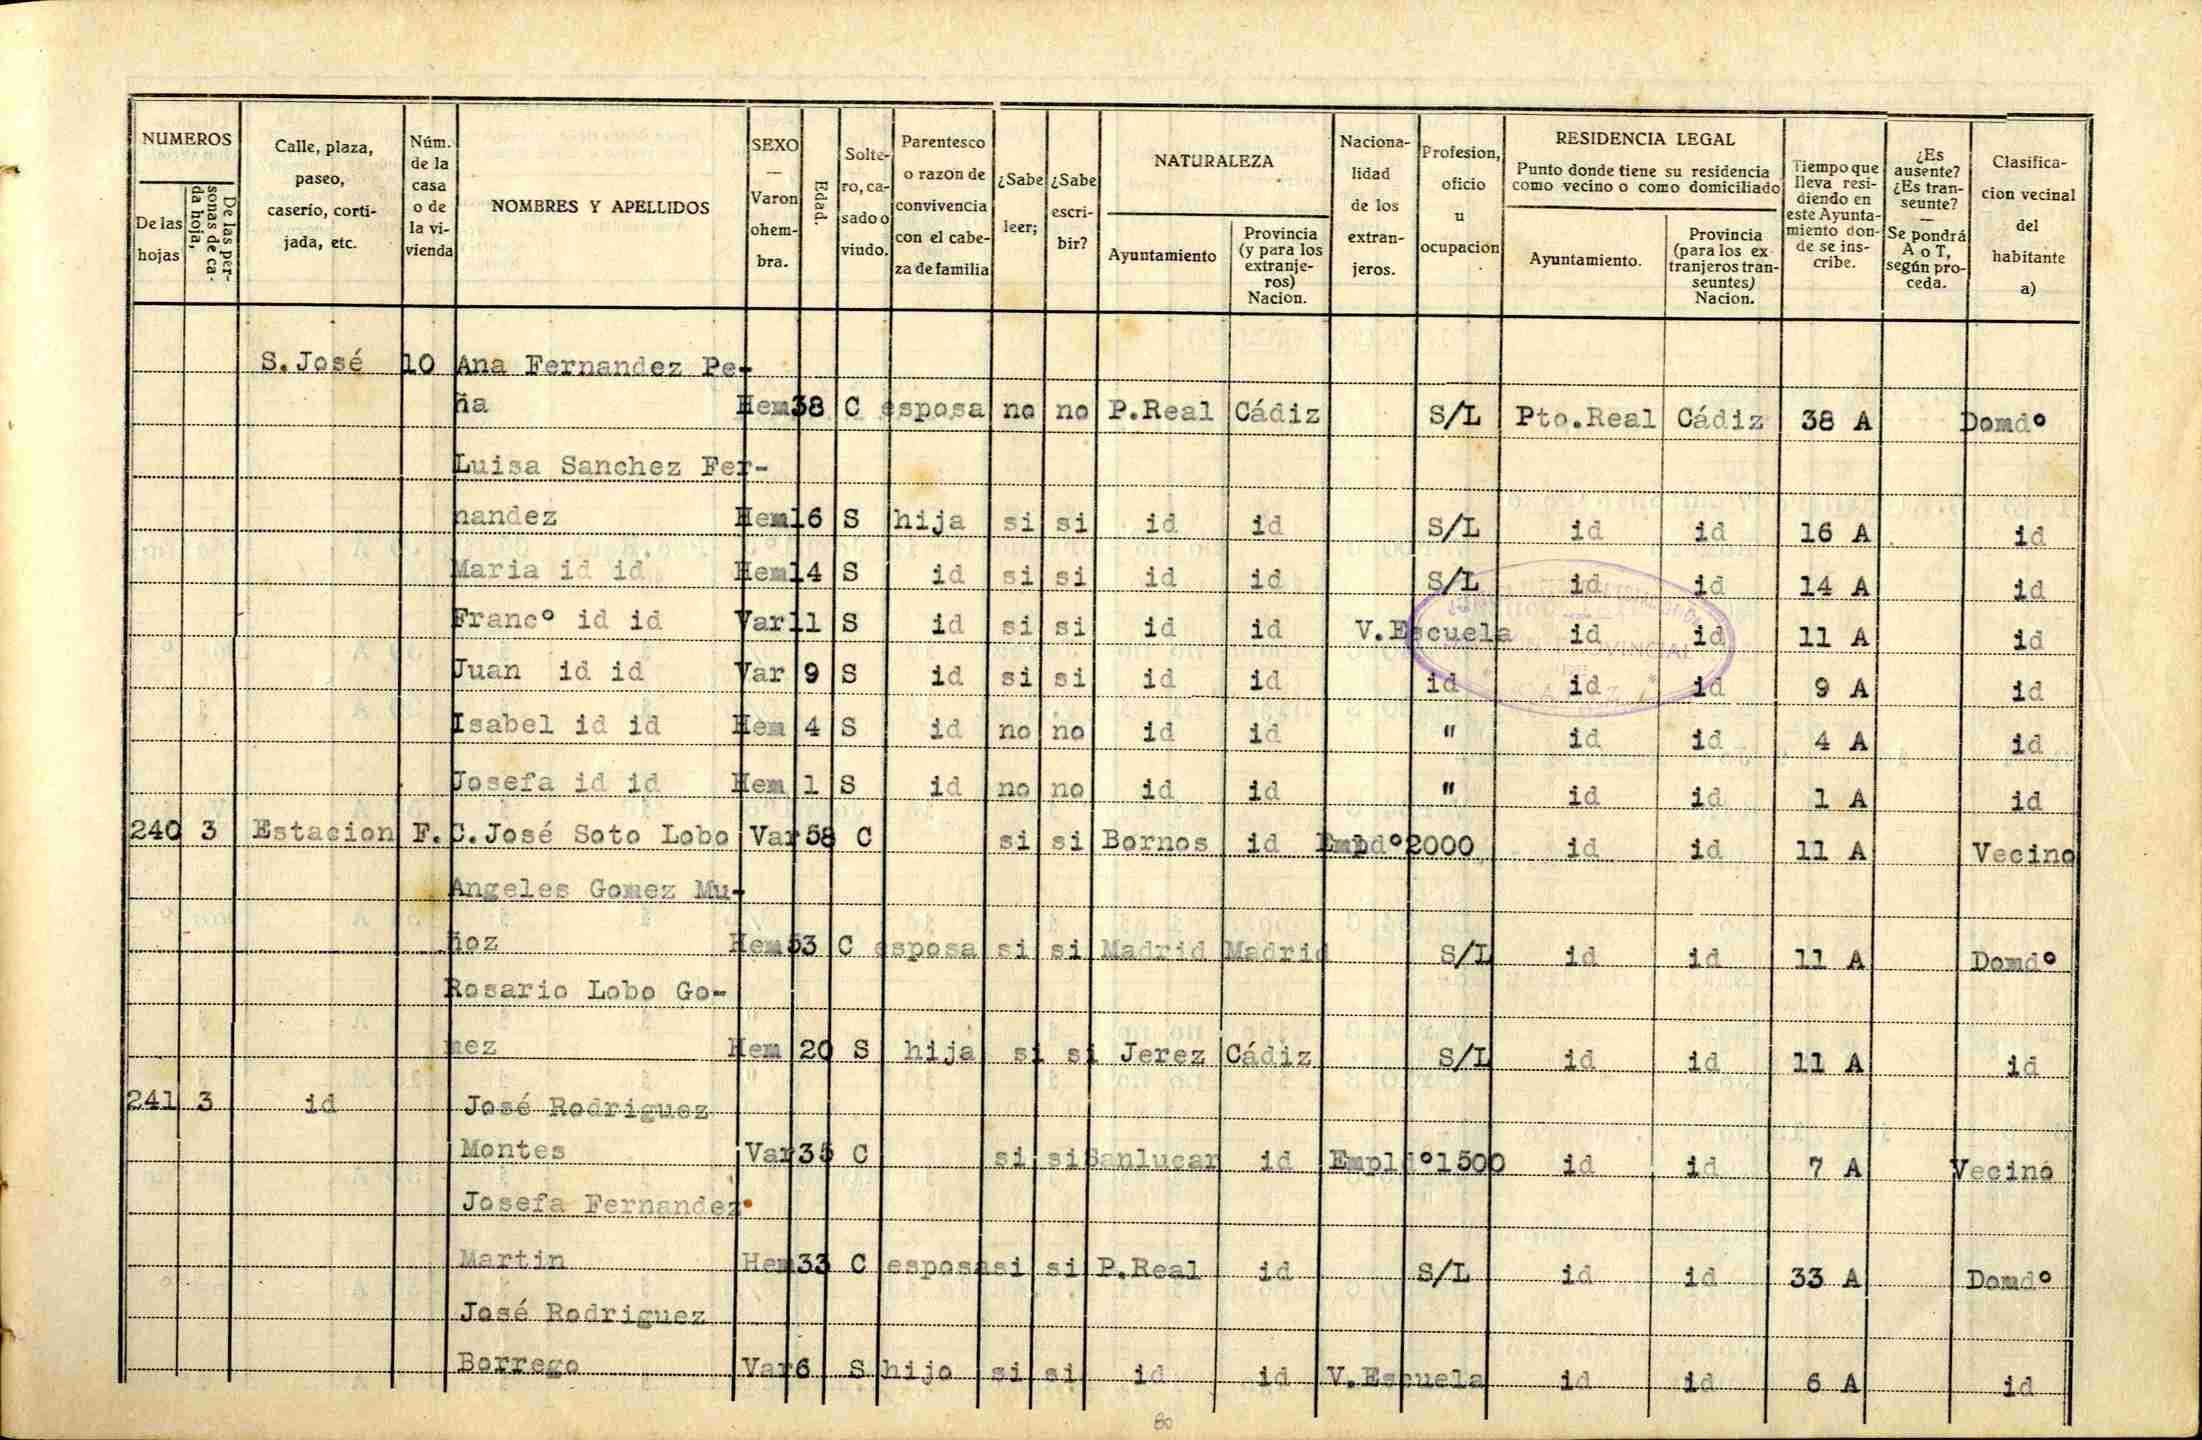 NUMEROS
De las hojas
De las personas de cada hoja,
Calle, plaza, paseo, caserío, cortijada, etc.
Núm. de la casa o de la vivienda
NOMBRES Y APELLIDOS
SEXO — Varon ohembra.
Edad.
Soltero, casado o viudo.
Parentesco o razon de convivencia con el cabeza de familia
¿Sabe leer;
¿Sabe escribir?
NATURALEZA
Ayuntamiento
Provincia (y para los extranjeros) Nacion.
Nacionalidad de los extranjeros.
Profesion, oficio u ocupación
RESIDENCIA LEGAL
Punto donde tiene su residencia como vecino o como domiciliado
Ayuntamiento.
Provincia (para los extranjeros transeuntes) Nacion.
Tiempo que lleva residiendo en este Ayuntamiento donde se inscribe.
¿Es ausente? ¿Es transeunte? — Se pondrá A o T, según proceda.
Clasificacion vecinal del habitante a)
S.José 10 Ana Fernandez Pe-
ña Hem 38 C esposa no no P.Real Cádiz S/L Pto.Real Cádiz 38 A Domdº
Luisa Sanchez Fer-
nandez Hem 16 S hija si si id id S/L id id 16 A id
Maria id id Hem 14 S id si si id id S/L id id 14 A id
Francº id id Var 11 S id si si id id V.Escuela id id 11 A id
Juan id id Var 9 S id si si id id id id id 9 A id
Isabel id id Hem 4 S id no no id id " id id 4 A id
Josefa id id Hem 1 S id no no id id " id id 1 A id
240 3 Estacion F.C. José Soto Lobo Var 58 C si si Bornos id Empldº 2000 id id 11 A Vecino
Angeles Gomez Mu-
ñoz Hem 53 C esposa si si Madrid Madrid S/L id id 11 A Domdº
Rosario Lobo Go-
mez Hem 20 S hija si si Jerez Cádiz S/L id id 11 A id
241 3 id José Rodriguez
Montes Var 35 C si si Sanlucar id Empldº 1500 id id 7 A Vecino
Josefa Fernandez
Martin Hem 33 C esposa si si P.Real id S/L id id 33 A Domdº
José Rodriguez
Borrego Var 6 S hijo si si id id V.Escuela id id 6 A id
PROVINCIAL
80